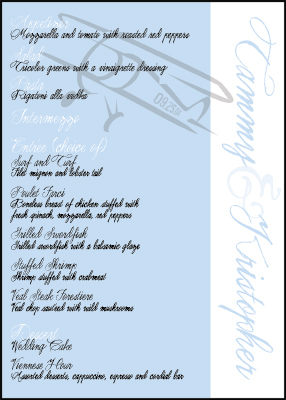 Appetizer
Mozzarella and tomato with roasted red peppers
Salad
Tricolor greens with a vinaigrette dressing
Pasta
Rigatoni alla vodka
Intermezzo
Entree (choice of)
Surf and Turf
Filet mignon and lobster tail
Poulet Farci
Boneless breast of chicken stuffed with
fresh spinach, mozzarella, red peppers
Grilled Swordfish
Grilled swordfish with a balsamic glaze
Stuffed Shrimp
Shrimp stuffed with crabmeat
Veal Steak Forestiere
Veal chop sauteed with wild mushrooms
Dessert
Wedding Cake
Viennese Hour
Assorted desserts, cappuccino, espresso and cordial bar
Tammy & Kristopher